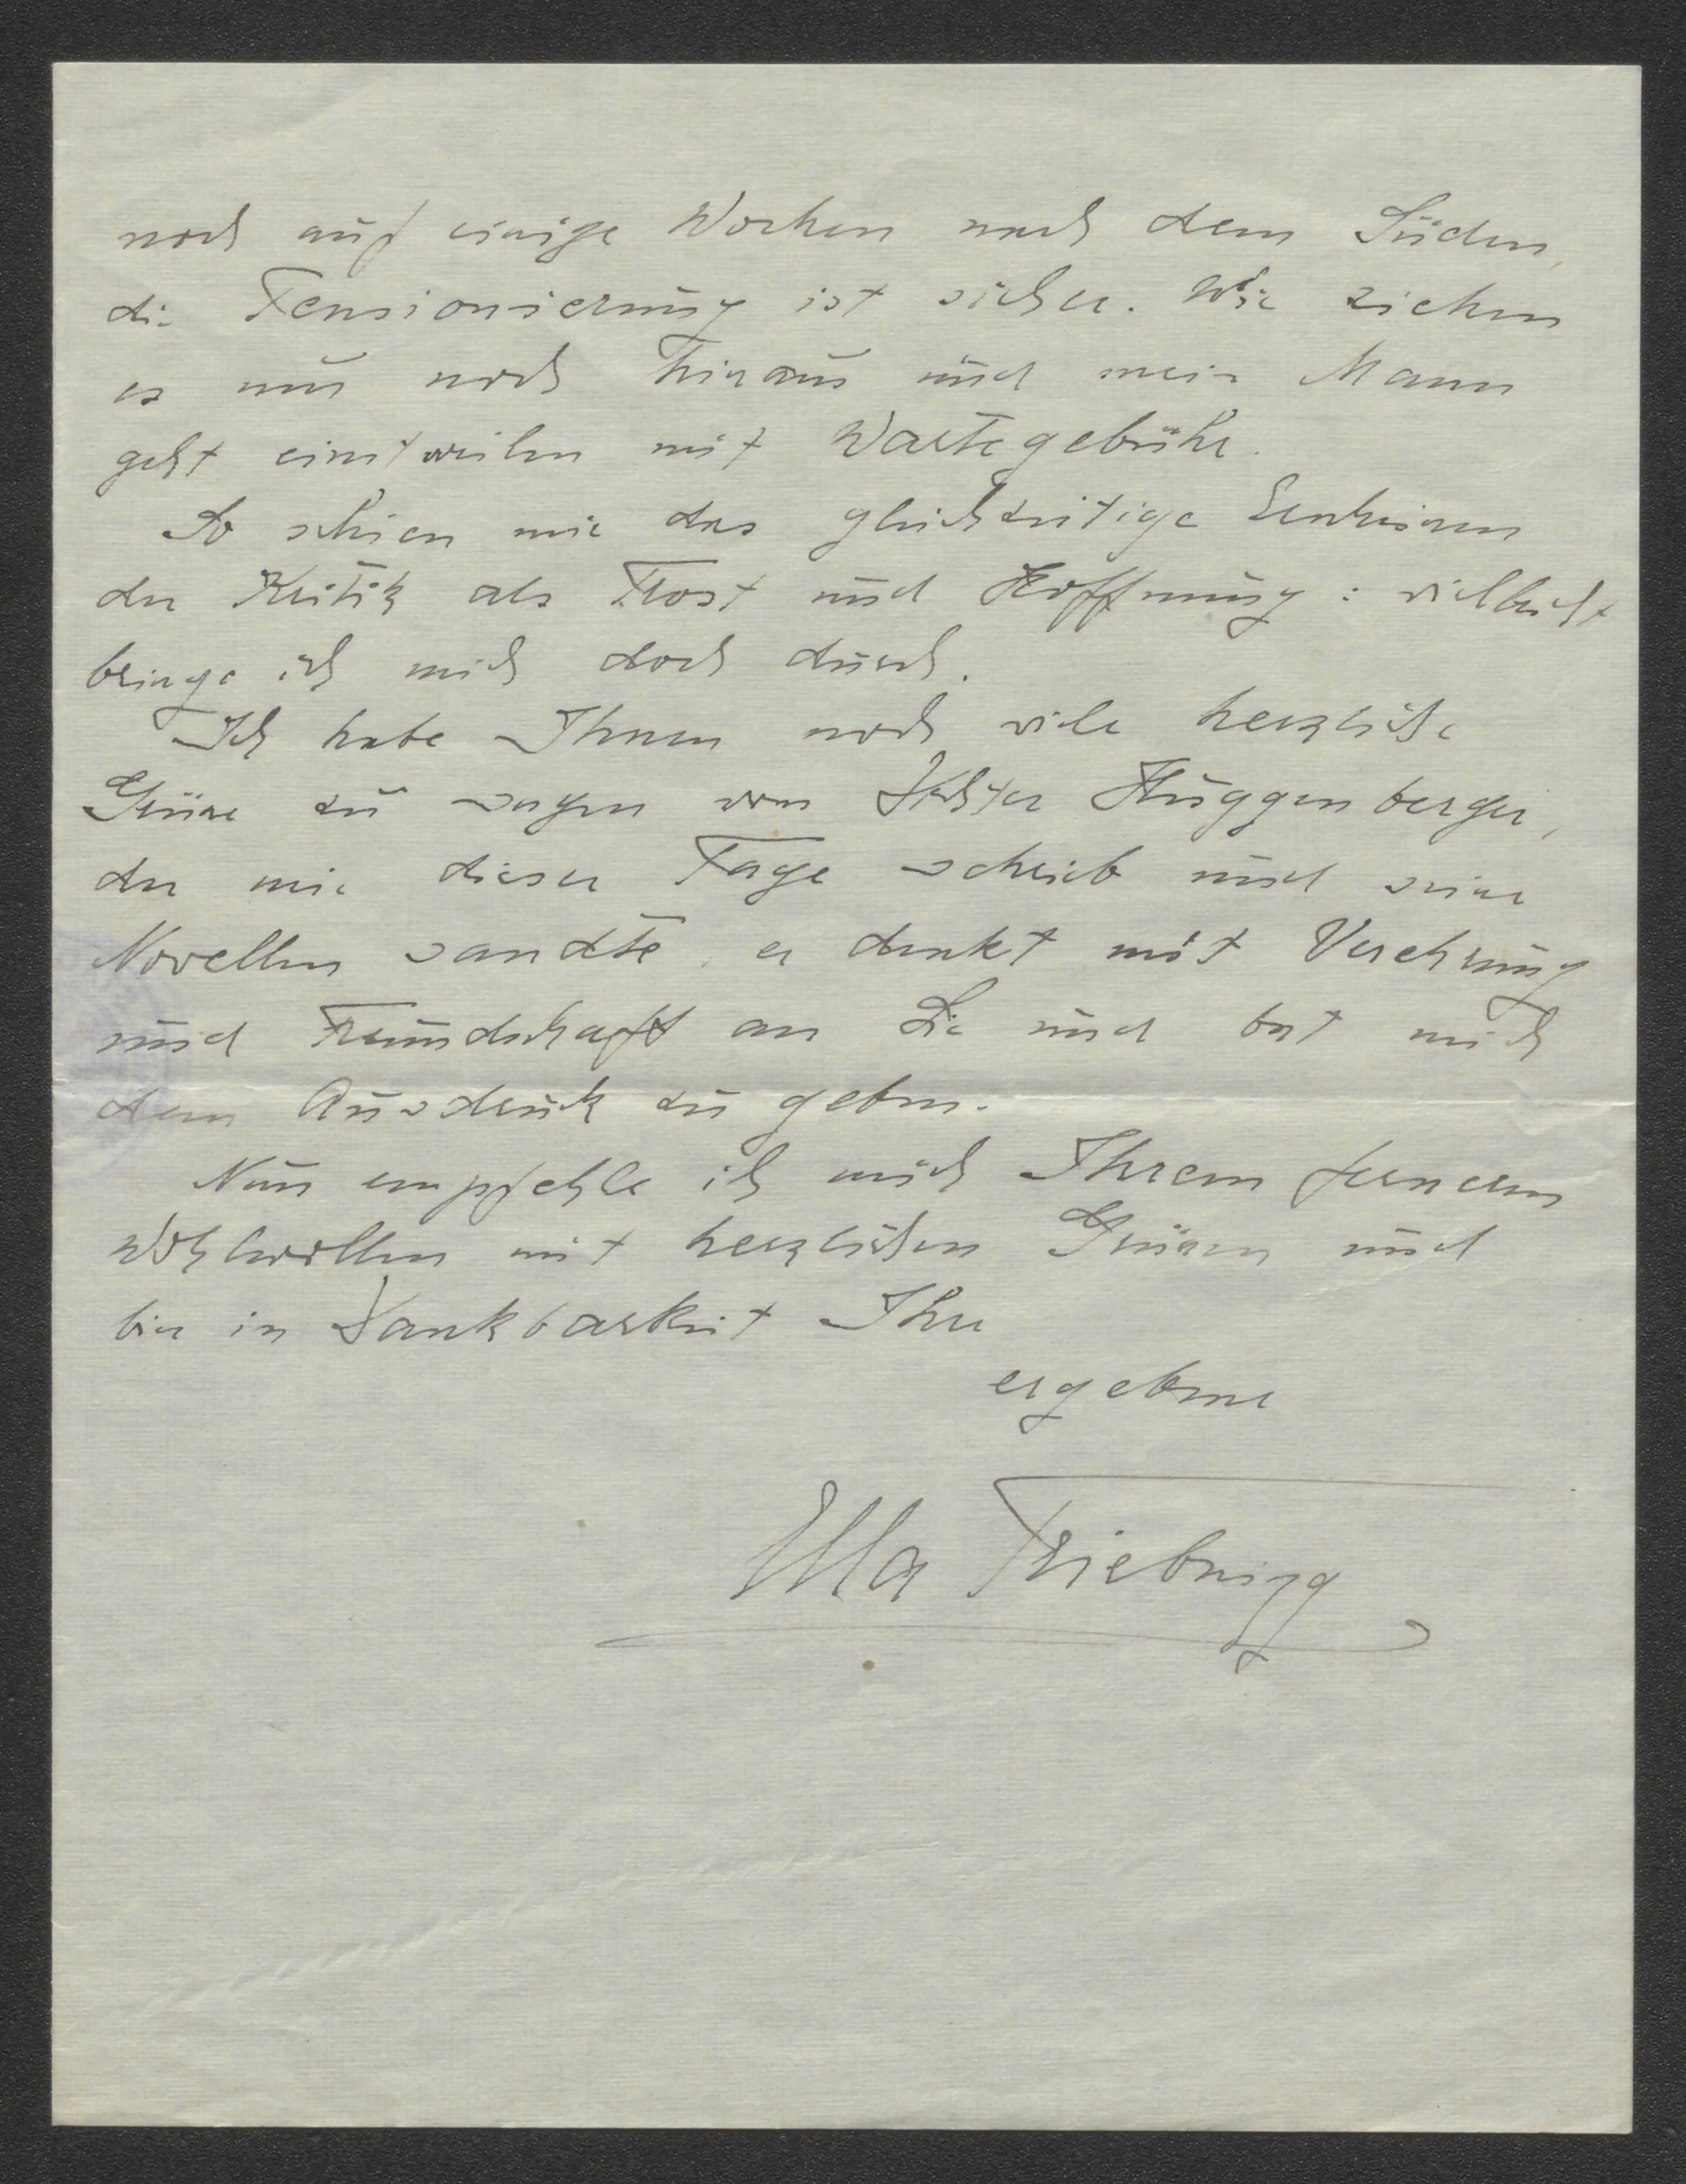 noch auf einige Wochen nach dem Süden,
die Pensionierung ist sicher. Wir ziehen
es nur noch hinaus und mein Mann
geht einstweilen mit Wartegebühr.
So schien mir das gleichzeitige Erscheinen
der Kritik als Trost und Hoffnung: vielleicht
bringe ich mich doch durch.
Ich habe Ihnen noch viele herzliche
Grüsse zu sagen vom Dichter Huggenberger,
der mir dieser Tage schrieb und seine
Novellen sandte, er denkt mit Verehrung
und Freundschaft an Sie und bat mich
dem Ausdruck zu geben.
Nun empfehle ich mich Ihrem ferneren
Wohlwollen mit herzlichen Grüssen und
bin in Dankbarkeit Ihre
ergebene
Ella Triebnigg